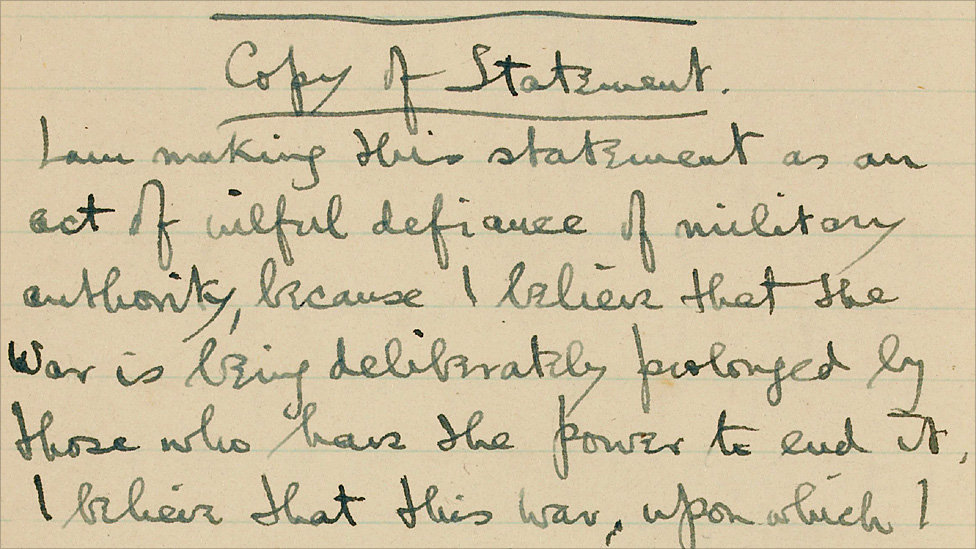 Copy of Statement.
I am making this statement as an
act of wilful defiance of military
authority, because I believe that the
War is being deliberately prolonged by
those who have the power to end it.
I believe that this war, upon which I